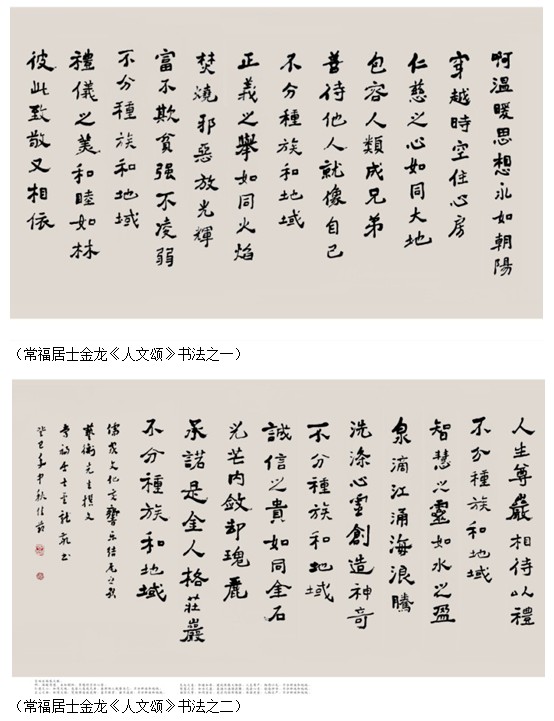 啊溫暖思想永如朝陽
穿越時空住心房
仁慈之心如同大地
包容人類成兄弟
善待他人就像自己
不分種族和地域
正義之舉如同火焰
焚燒邪惡放光輝
富不欺貧强不凌弱
不分種族和地域
禮儀之美和睦如林
彼此致敬又相依
（常福居士金龙《人文颂》书法之一）
人生尊嚴相待以禮
不分種族和地域
智慧之靈如水之盈
泉滴江涌海浪騰
洗滌心靈創造神奇
不分種族和地域
誠信之貴如同金石
光芒内斂却瑰麗
承諾是全人格莊嚴
不分種族和地域
儒家文化交響樂結尾之歌
藝衡先生撰文
常福居士金龍敬书
癸巳年中秋佳節
（常福居士金龙《人文颂》书法之二）